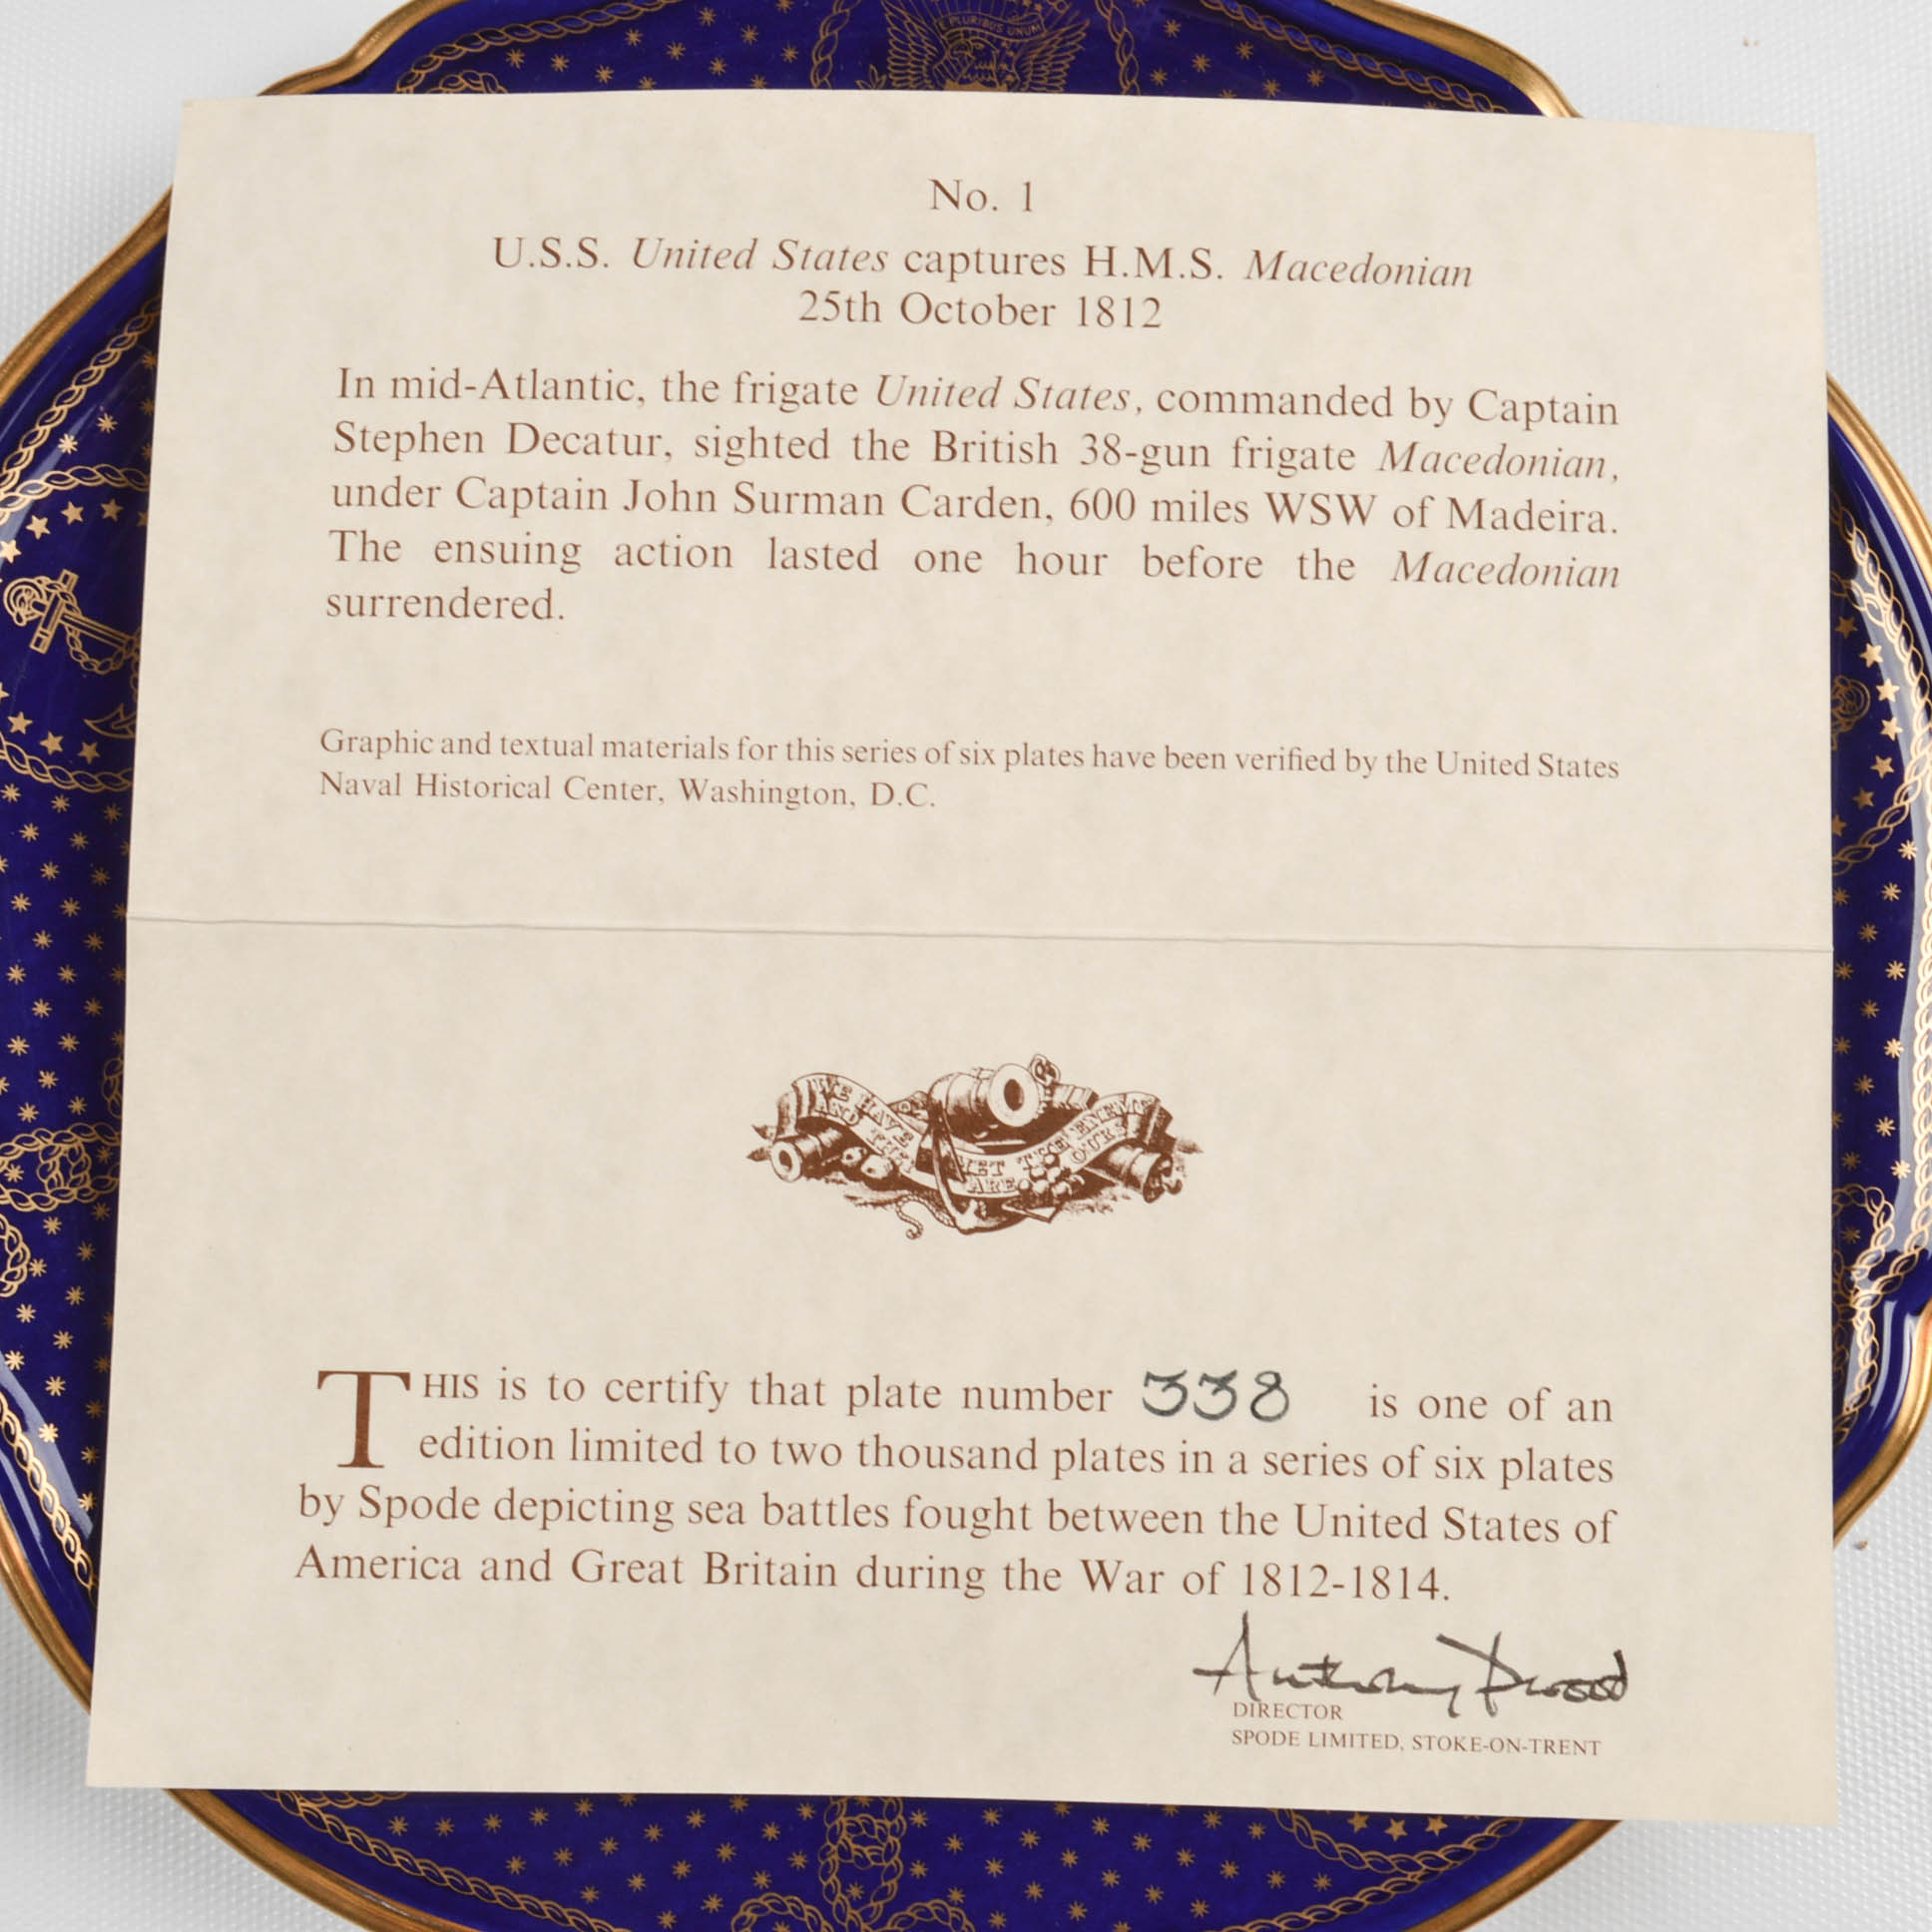 E PLURIBUS UNUM
No. 1
U.S.S. United States captures H.M.S. Macedonian
25th October 1812
In mid-Atlantic, the frigate United States, commanded by Captain
Stephen Decatur, sighted the British 38-gun frigate Macedonian,
under Captain John Surman Carden, 600 miles WSW of Madeira.
The ensuing action lasted one hour before the Macedonian
surrendered.
Graphic and textual materials for this series of six plates have been verified by the United States
Naval Historical Center, Washington, D.C.
WE HAVE MET THE ENEMY
AND THEY ARE OURS
THIS is to certify that plate number 338 is one of an
edition limited to two thousand plates in a series of six plates
by Spode depicting sea battles fought between the United States of
America and Great Britain during the War of 1812-1814.
DIRECTOR
SPODE LIMITED, STOKE-ON-TRENT